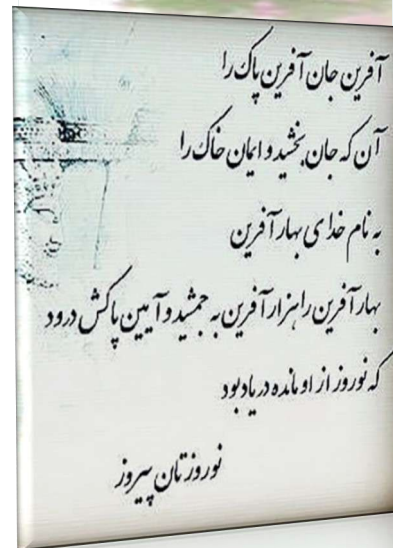 آفرین جان آفرین پاک را
آن که جان بخشید و ایمان خاک را
به نام خدای بهار آفرین
بهار آفرین را هزار آفرین به جمشید و آیین پاکش درود
که نوروز از او مانده در یادبود
نوروزتان پیروز